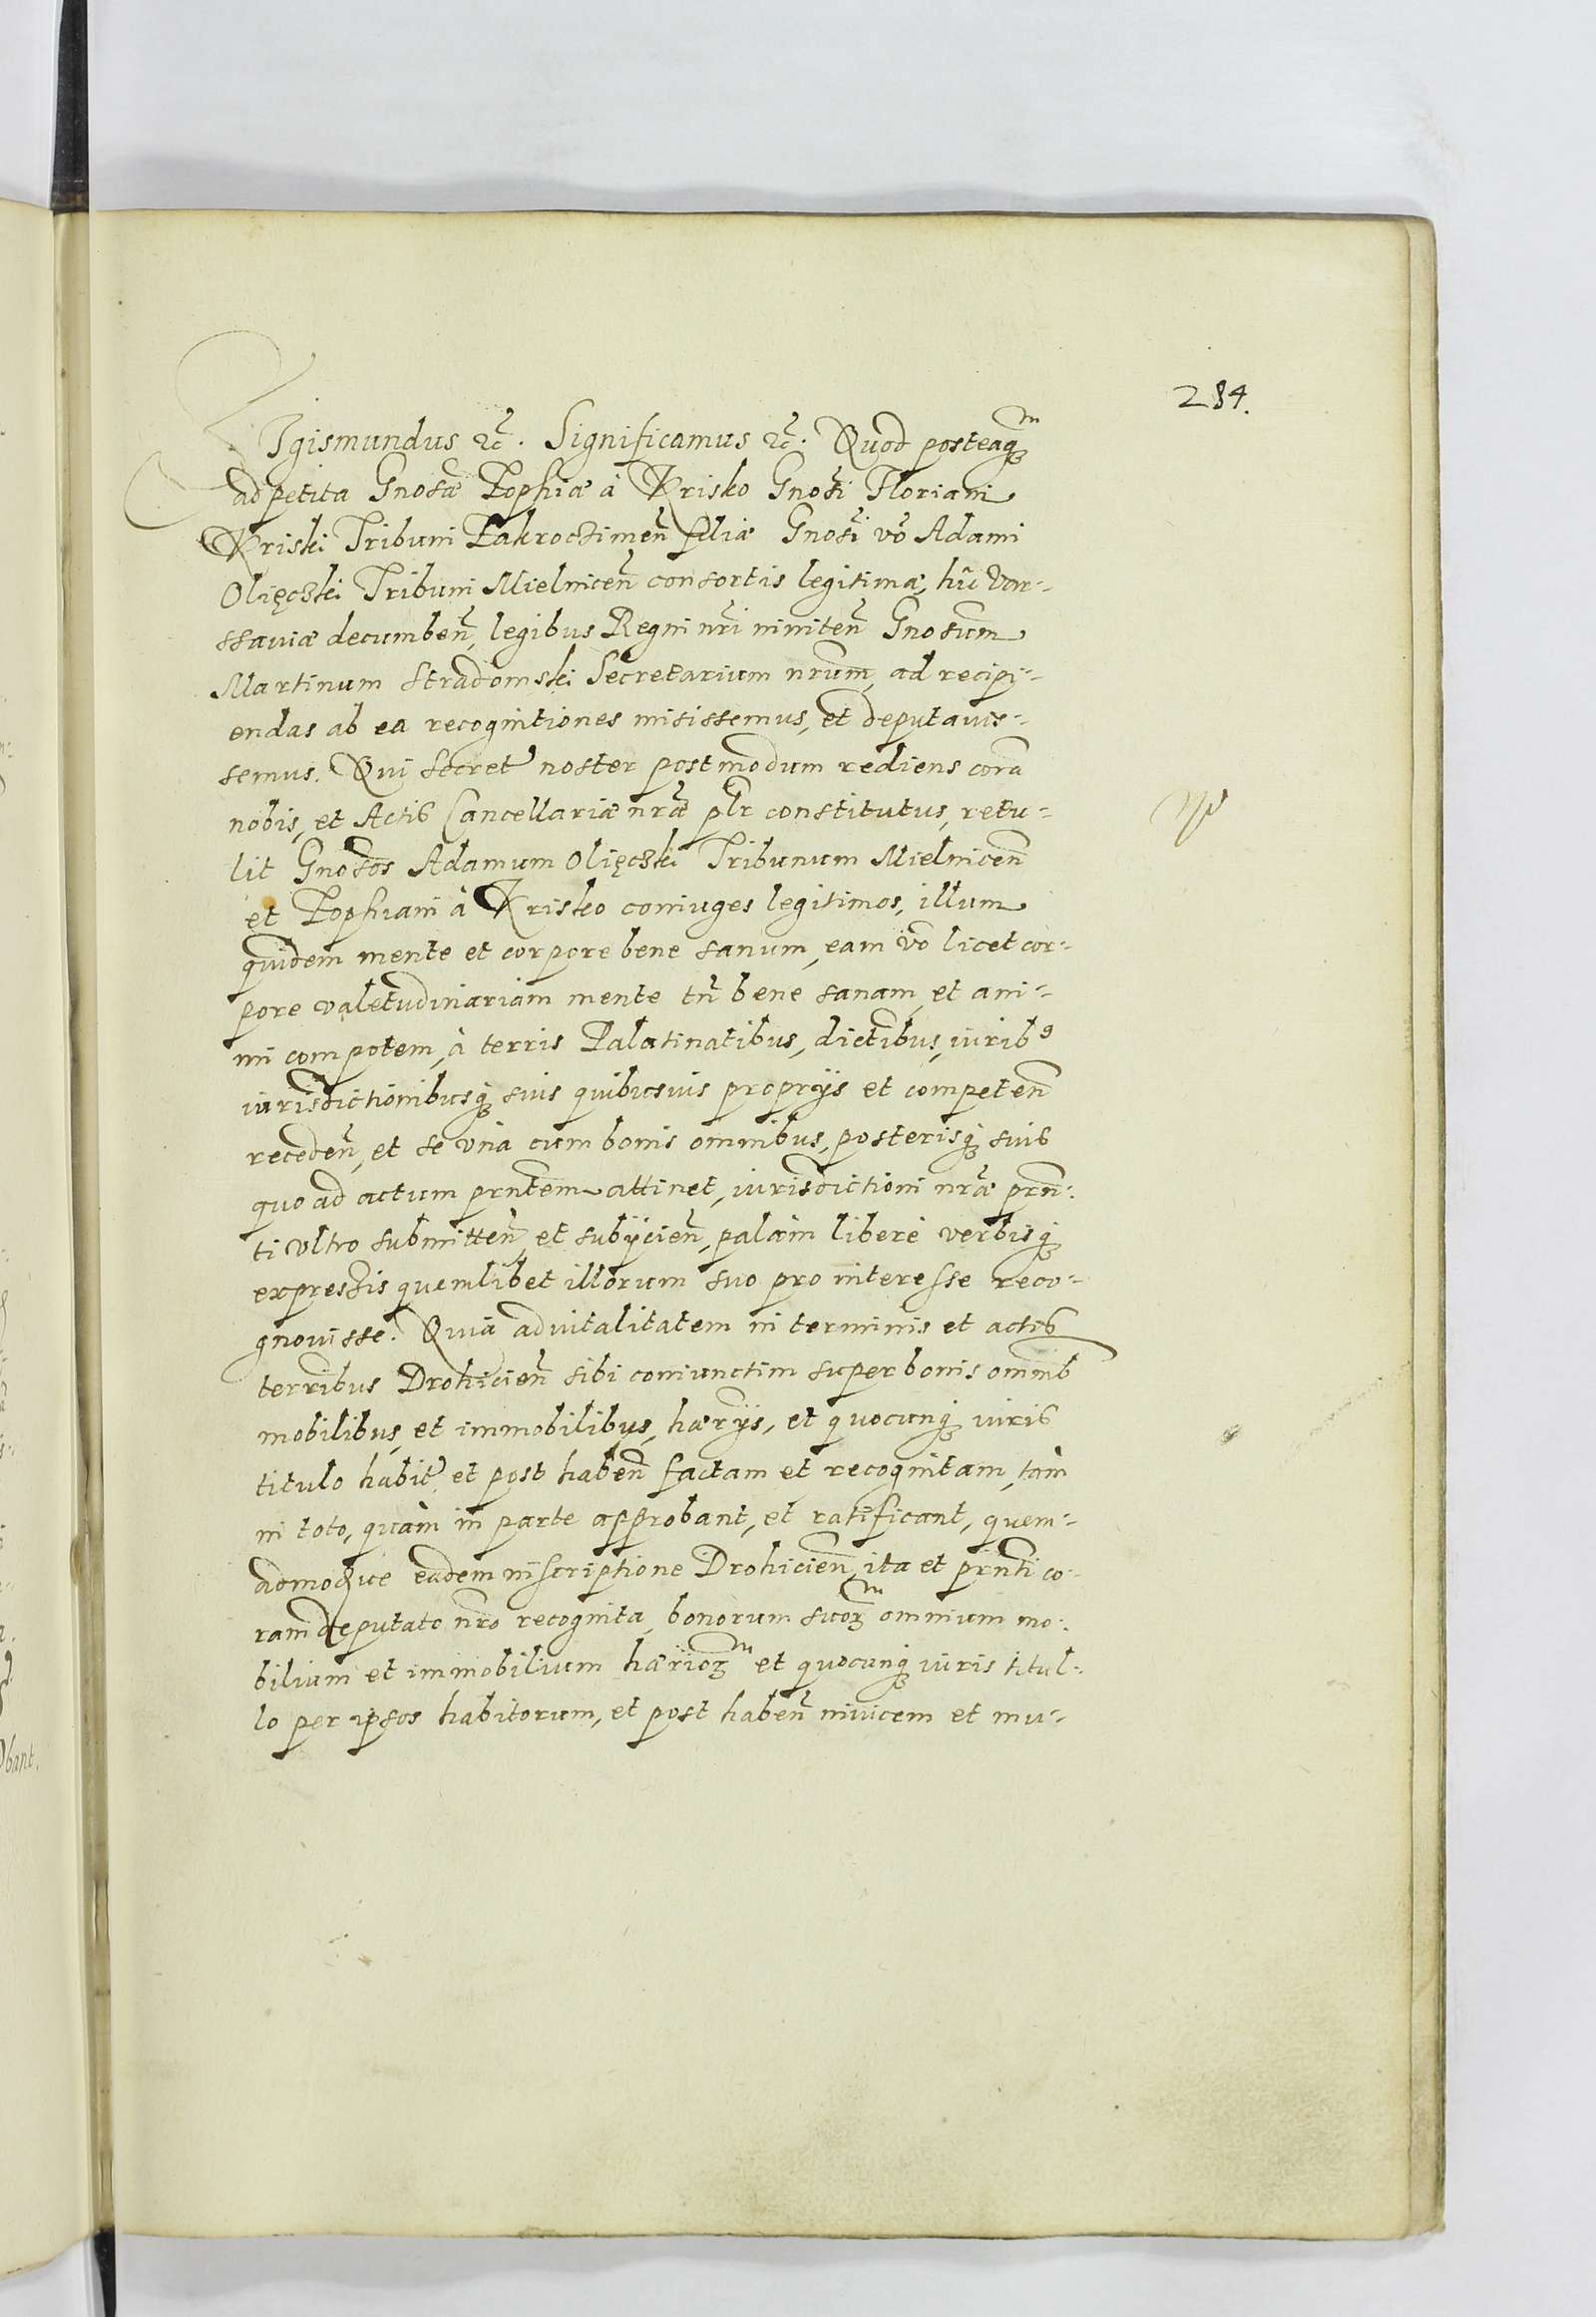 284.
Sigismundus &c̃. Significamus &c̃. Quod posteaqȝm
ad petita Gnosæ Zophiæ à Krisko Gnosi Floriani
Kriski Tribuni Zakroczimeñ filiæ Gnosi võ Adami
Olięczki Tribuni Mielniceñ consortis legitimæ, hĩc Var-
ssaviæ decumbeñ, legibus Regni nr̃i initeñ Gnosum
Martinum Stradomski Secretarium nr̃um, ad recipi-
endas ab ea recognitiones misissemus, et deputavis-
semus. Qui Secret' noster postmodum rediens corã
nobis, et Actis Cancellariæ nr̃æ plr̃ constitutus, retu-
lit Gnosos Adamum Olięczki Tribunum Mielniceñ
et Zophiam à Krisko coniuges legitimos, illum
quidem mente et corpore bene sanum, eam võ licet cor-
pore valetudinariam mente tñ bene sanam, et ani-
mi compotem, à terris Palatinatibus, dictibus, iurib9
iurisdictionibusqȝ suis quibusvis proprijs et competeñ
recedeñ, et se unà cum bonis omnibus, posterisqȝ suis
quo ad actum prñtem attinet, iurisdictioni nr̃æ prñ-
ti ultro submitteñ, et subijcieñ, palàm liberè verbisqȝ
expressis quemlibet illorum suo pro interesse reco-
gnovisse. Quia advitalitatem in terminis et actis
terribus Drohicieñ sibi coniunctim super bonis omnib
mobilibus, et immobilibus, hærijs, et quocunqȝ iuris
titulo habit' et post habeñ factam et recognitam, tàm
in toto, quàm in parte approbant, et ratificant, quem-
admoque eadem inscriptione Drohicieñ, ita et prñti co-
ram deputato nr̃o recognita, bonorum suoȝm omnium mo-
bilium et immobilium hærioȝm et quocunqȝ iuris titul-
lo per ipsos habitorum, et post habeñ invicem et mu-